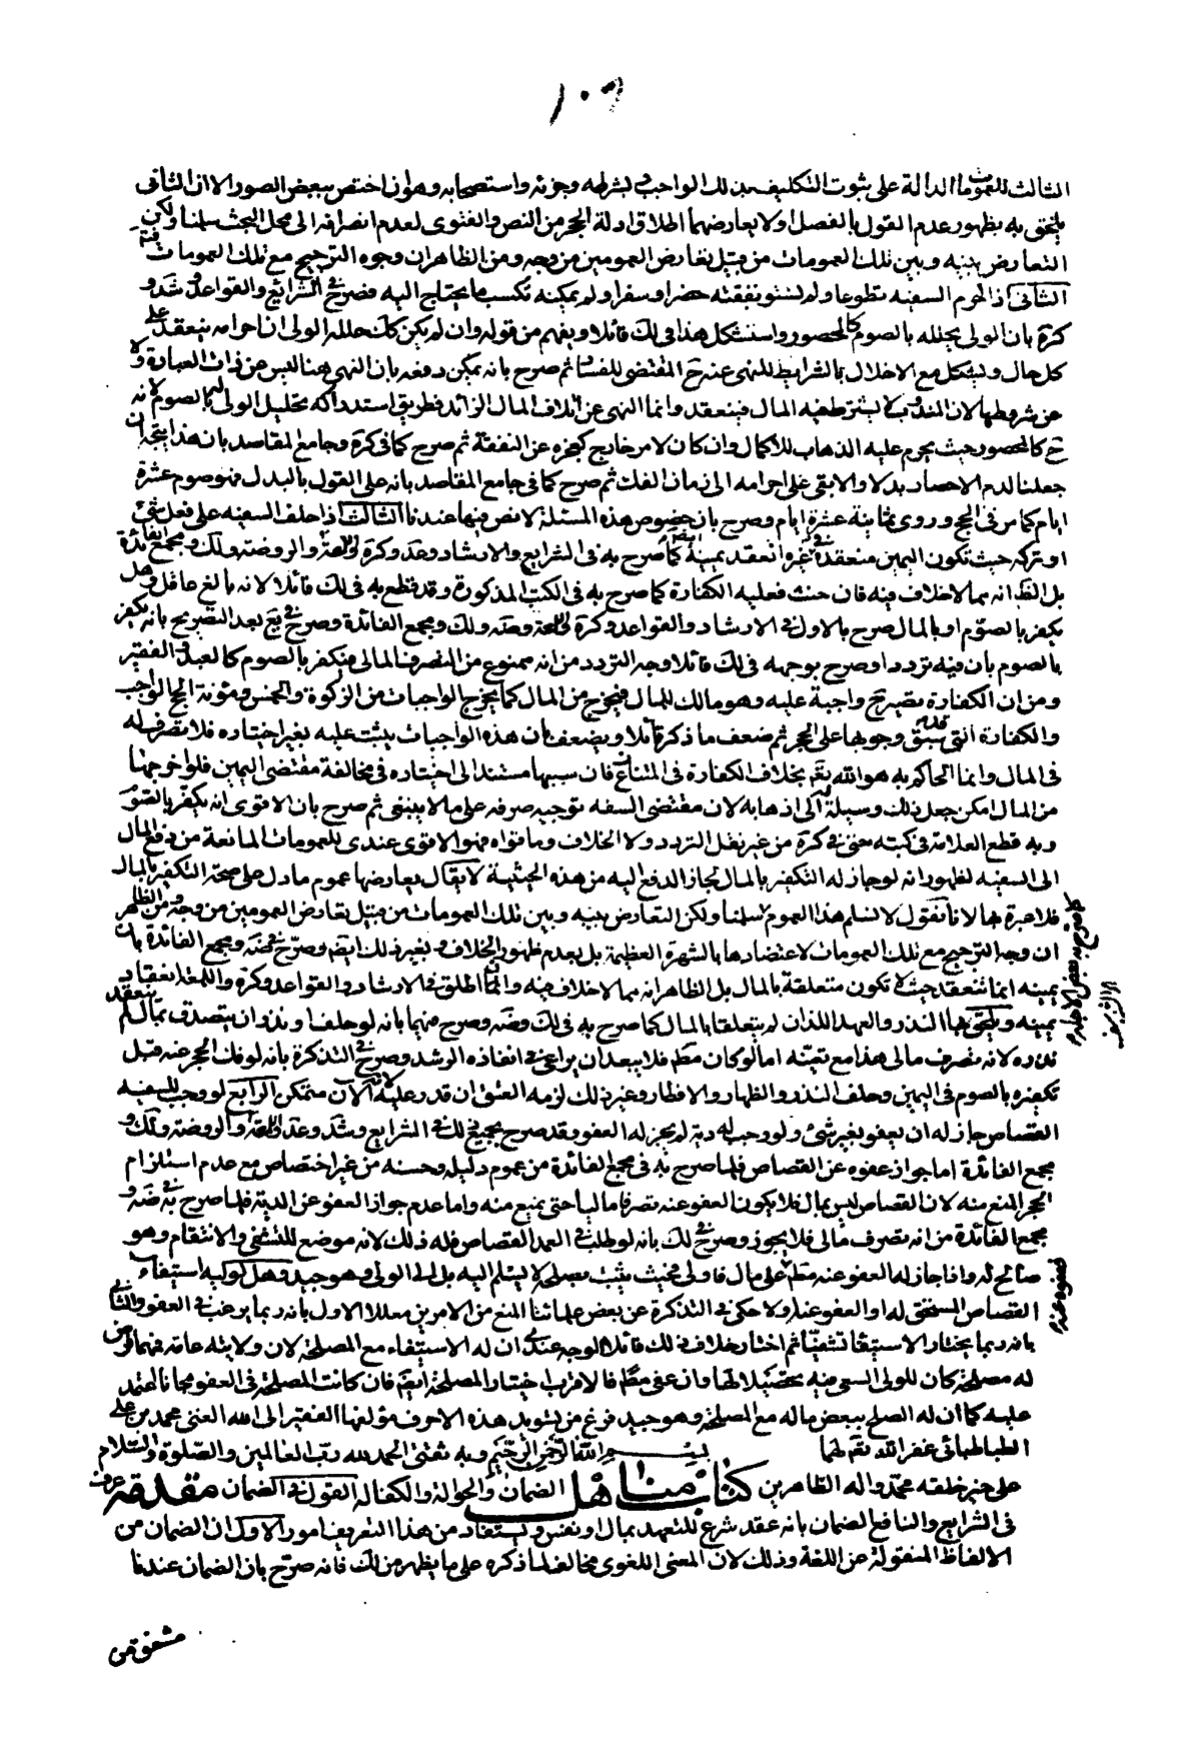 ١٠٦
الثالث للعمومات الدالة على ثبوت التكليف بذلك الواجب بشرطه وجزئه واستصحابه وهو ان اختص ببعض الصور الا ان الثانى
يلحق به بظهور عدم القول بالفصل ولا يعارضهما اطلاق ادلة الحجر من النص والفتوى لعدم انصرافه الى محل البحث سلمنا ولكن
التعارض بينه وبين تلك العمومات من قبيل تعارض العمومين من وجه ومن الظاهر ان وجوه الترجيح مع تلك العمومات
الثانى اذا احرم السفيه تطوعا ولم تستو نفقته حضرا وسفرا ولم يمكنه تكسب ما يحتاج اليه فصرح فى الشرايع والقواعد وشد و
كرة بان الولى يحلله بالصوم كالمحصور واستشكل هذا فى لك قائلا ويفهم من قوله وان لم يكن كك حلله الولى ان احرامه ينعقد على
كل حال ويشكل مع الاخلال بالشرايط للنهى عنه ح المقتضى للفساد ثم صرح بانه يمكن دفعه بان النهى هنا ليس عن ذات العبادة ولا
عن شرطها لان المندوب لا يشترط فيه المال فينعقد وانما النهى عن اتلاف المال الزائد فطريق استدراكه تحليل الولى له بالصوم لانه
ح كالمحصور حيث يحرم عليه الذهاب للاكمال وان كان لامر خارج كعجزه عن النفقة ثم صرح كما فى كرة وجامع المقاصد بان هذا يتجه ان
جعلنا لدم الاحصار بدلا والا بقى على احرامه الى زمان الفك ثم صرح كما فى جامع المقاصد بانه على القول بالبدل فهو صوم عشرة
ايام كما مر فى الحج وروى ثمانية عشرة ايام وصرح بان خصوص هذه المسئلة لا نص فيها عندنا الثالث اذا حلف السفيه على فعل شئ
او تركه حيث تكون اليمين منعقدة فى غيره انعقد يمينه كما صرح به فى الشرايع والارشاد وعد وكرة واللمعة والروضة ولك ومجمع الفائدة
بل الظ انه مما لا خلاف فيه فان حنث فعليه الكفارة كما صرح به فى الكتب المذكورة وقد قطع به فى لك قائلا لانه بالغ عاقل وهل
يكفر بالصوم او بالمال صرح بالاول فى الارشاد والقواعد وكرة واللمعة وضه ولك ومجمع الفائدة وصرح فى يع بعد التصريح بانه يكفر
بالصوم بان فيه تردد وصرح بوجهه فى لك قائلا وجه التردد من انه ممنوع من التصرف المالى فيكفر بالصوم كالعبد والفقير
ومن ان الكفارة تصير ح واجبة عليه وهو مالك للمال فيخرج من المال كما يخرج الواجبات من الزكوة والخمس ومؤنة الحج الواجب
والكفارة التى سبق وجوبها على الحجر ثم ضعف ما ذكر قائلا ويضعف بان هذه الواجبات يثبت عليه بغير اختياره فلا تصرف له
فى المال وانما الحاكم به هو الله تع بخلاف الكفارة فى المتنازع فان سببها مستند الى اختياره فى مخالفة مقتضى اليمين فلو اخرجها
من المال امكن جعل ذلك وسيلة له الى اذهابه لان مقتضى السفه توجيه صرفه على ما لا ينبغى ثم صرح بان الاقوى انه يكفر بالصوم
وبه قطع العلامة فى كتبه حتى فى كرة من غير نقل التردد ولا الخلاف وما قواه فهو الاقوى عندى للعمومات المانعة من دفع المال
الى السفيه لظهور انه لو جاز له التكفير بالمال لجاز الدفع اليه من هذه الحيثية لا يقال يعارضها عموم ما دل على صحة التكفير بالمال
فلا عبرة بها لانا نقول لا نسلم هذا العموم سلمنا ولكن التعارض بينه وبين تلك العمومات من قبيل تعارض العمومين من وجه ومن الظاهر
ان وجه الترجيح مع تلك العمومات لاعتضادها بالشهرة العظيمة بل بعدم ظهور الخلاف وبغير ذلك ايضا وصرح فى ضه ومجمع الفائدة بان
يمينه انما تنعقد حيث لا تكون متعلقة بالمال بل الظاهر انه مما لا خلاف فيه وانما اطلق فى الارشاد والقواعد وكرة واللمعة انعقاد
يمينه ويلحق بها النذر والعهد اللذان لم يتعلقا بالمال كما صرح به فى لك وضه وصرح فيهما بانه لو حلف او نذر ان يتصدق بمال لم ينعقد
نذره لانه تصرف مالى هذا مع تعينه اما لو كان مطلقا فلا يبعد ان يراعى فى انفاذه الرشد وصرح فى التذكرة بانه لو فك الحجر عنه قبل
تكفيره بالصوم فى اليمين وحلف النذر والظهار والافطار وغير ذلك لزمه العتق ان قدر عليه لانه الآن متمكن الرابع لو وجب للسفيه
القصاص جاز له ان يعفو بغير شئ ولو وجب له دية لم يجز له العفو وقد صرح بجميع ذلك فى الشرايع وشد وعد واللمعة والروضة ولك و
مجمع الفائدة اما جواز عفوه عن القصاص فلما صرح به فى مجمع الفائدة من عموم دليله وحسنه من غير اختصاص مع عدم استلزام
الحجر المنع منه لان القصاص ليس بمال فلا يكون العفو عنه تصرفا ماليا حتى يمنع منه واما عدم جواز العفو عن الدية فلما صرح به فى ضه و
مجمع الفائدة من انه تصرف مالى فلا يجوز وصرح فى لك بانه لو طلب فى العمد القصاص فله ذلك لانه موضع للتشفى والانتقام وهو
صالح له واذا جاز له العفو عنه مطلقا على مال فاولى وحيث يثبت مصلحة لا يسلم اليه بل الى الولى وهو جيد وهل لوليه استيفاء
القصاص المستحق له او العفو عنه او لا حكى فى التذكرة عن بعض علمائنا المنع من الامرين معللا الاول بانه ربما يرغب فى العفو والثانى
بانه ربما يختار الاستيفاء تشفيا ثم اختار خلافه فى ذلك قائلا الوجه عندى ان له الاستيفاء مع المصلحة لان ولايته عامة فمهما فرض
له مصلحة كان للولى السعى فيه تحصيلا لها وان عفى مطلقا فالاقرب اختيار المصلحة ايضا فان كانت المصلحة فى العفو مجانا اعتمد
عليه كما ان له الصلح ببعض ماله مع المصلحة وهو جيد فرغ من تسويد هذه الاحرف مؤلفها الفقير الى الله الغنى محمد بن على
الطباطبائى غفر الله تعالى لهما بسم الله الرحمن الرحيم وبه ثقتى الحمد لله رب العالمين والصلوة والسلام
على خير خلقه محمد واله الطاهرين كتاب مناهل الضمان والحوالة والكفالة القول فى الضمان مقدمة عرف
فى الشرايع والنافع الضمان بانه عقد شرع للتعهد بمال او نفس ويستفاد من هذا التعريف امور الاول ان الضمان من
الالفاظ المنقولة عن اللغة وذلك لان المعنى اللغوى مخالف لما ذكره على ما يظهر من لك فانه صرح بان الضمان عندنا
مشتق من